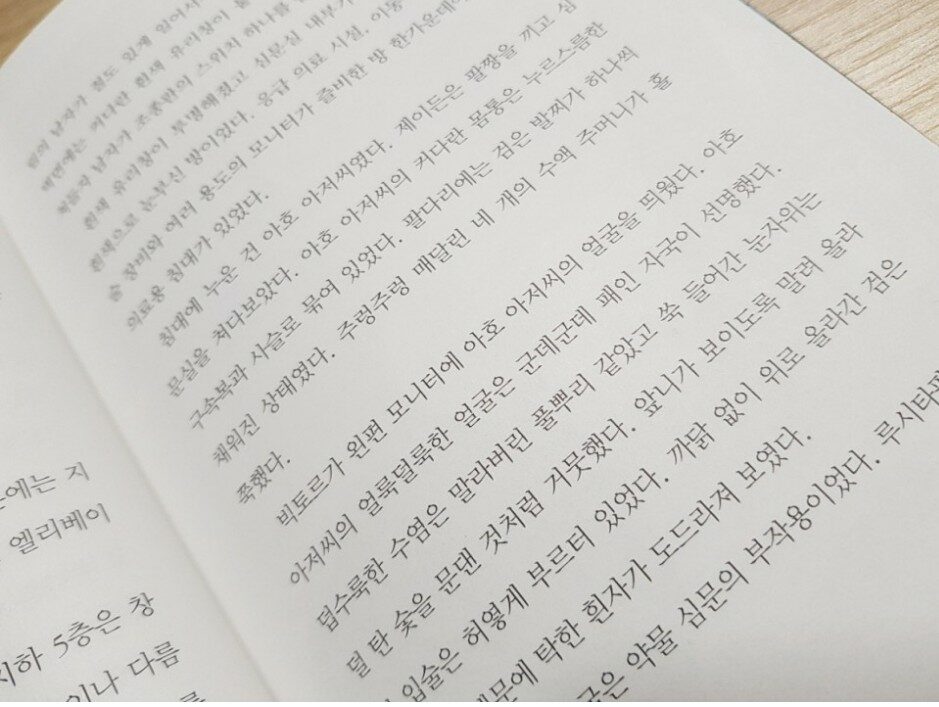 에는 지
엘리베이
지하 5층은 창
이나 다름
남자가 철도 있게 있어서
벽면에는 커다란 흰색 유리창이
남자가 조롱만의 스위치 하나를
흰색 유리창이 투명해졌고 심문실 내부가
흰색으로 눈부신 방이었다. 응급 의료 시설, 이동
술 장비와 여러 용도의 모니터가 즐비한 방 한가운데에
의료용 침대가 있었다.
침대에 누운 건 아호 아저씨였다. 제이든은 팔짱을 끼고 심
문실을 쳐다보았다. 아호 아저씨의 커다란 몸통은 누르스름한
구속복과 사슬로 묶여 있었다. 팔다리에는 검은 발찌가 하나씩
채워진 상태였다. 주렁주렁 매달린 네 개의 수액 주머니가 홀
쭉했다.
빅토르가 왼편 모니터에 아호 아저씨의 얼굴을 띄웠다. 아호
아저씨의 얼룩덜룩한 얼굴은 군데군데 패인 자국이 선명했다.
덥수룩한 수염은 말라버린 풀뿌리 같았고 쑥 들어간 눈자위는
덜 탄 숯을 문댄 것처럼 거뭇했다. 앞니가 보이도록 말려 올라
입술은 허옇게 부르터 있었다. 까닭 없이 위로 올라간 검은
때문에 탁한 흰자가 도드라져 보였다.
굴은 약물 심문의 부작용이었다. 루시타